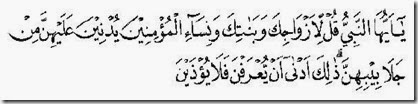 يَٰٓأَيُّهَا النَّبِيُّ قُلْ لِّأَزْوَاجِكَ وَبَنٰتِكَ وَنِسَآءِ الْمُؤْمِنِيْنَ يُدْنِيْنَ عَلَيْهِنَّ مِنْ
جَلَابِيْبِهِنَّ ۗ ذٰلِكَ أَدْنٰىٓ أَنْ يُّعْرَفْنَ فَلَا يُؤْذَيْنَ